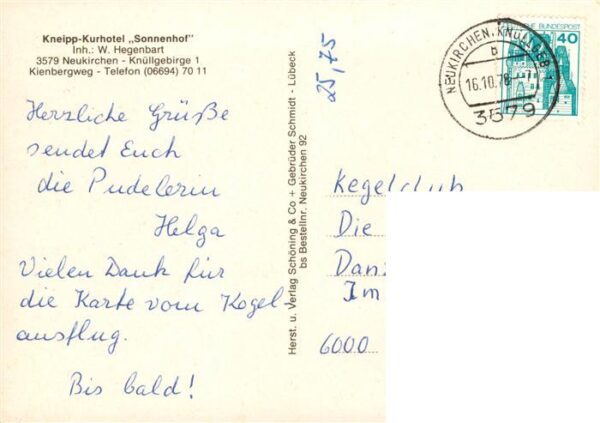 Kneipp-Kurhotel „Sonnenhof"
Inh.: W. Hegenbart
3579 Neukirchen - Knüllgebirge 1
Kienbergweg - Telefon (06694) 70 11
Herzliche Grüße
sendet Euch
die Pudelerin
Helga
Vielen Dank für
die Karte vom Kegel-
ausflug.
Bis bald!
Herst. u. Verlag Schöning & Co + Gebrüder Schmidt - Lübeck
bs Bestellnr. Neukirchen 92
25,75
NEUKIRCHEN, KNÜLLGEB 1
B
16.10.78
3579
BUNDESPOST
40
Kegelclub
Die
Dan
Im
6000